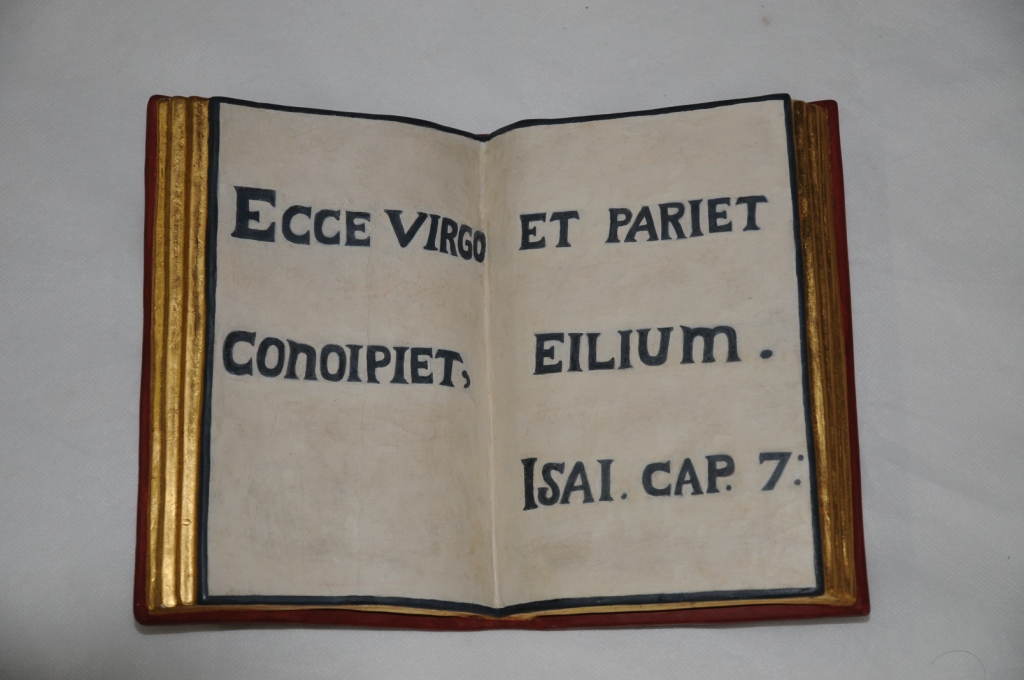 ECCE VIRGO
CONOIPIET;
ET PARIET
EILIUM.
ISAI. CAP. 7: